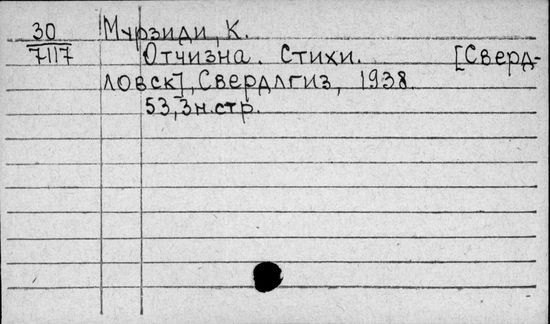 30 Мурзиди, К.
7117 Отчизна. Стихи. [Сверд-
ловск], Свердлгиз, 1938.
53, 3н.стр.